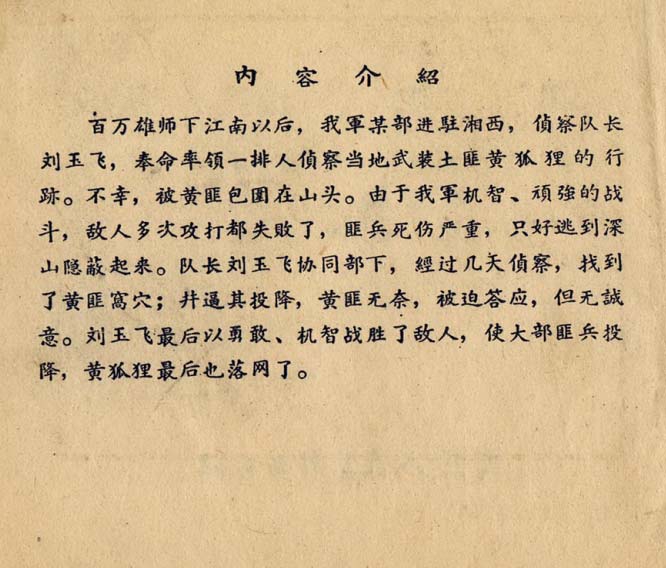 内容介紹
百万雄师下江南以后，我軍某部进駐湘西，偵察队长
刘玉飞，奉命率领一排人偵察当地武装土匪黄狐狸的行
跡。不幸，被黄匪包围在山头。由于我軍机智、頑強的战
斗，敌人多次攻打都失败了，匪兵死伤严重，只好逃到深
山隐蔽起来。队长刘玉飞协同部下，經过几天偵察，找到
了黄匪窩穴；并逼其投降，黄匪无奈，被迫答应，但无誠
意。刘玉飞最后以勇敢、机智战胜了敌人，使大部匪兵投
降，黄狐狸最后也落网了。